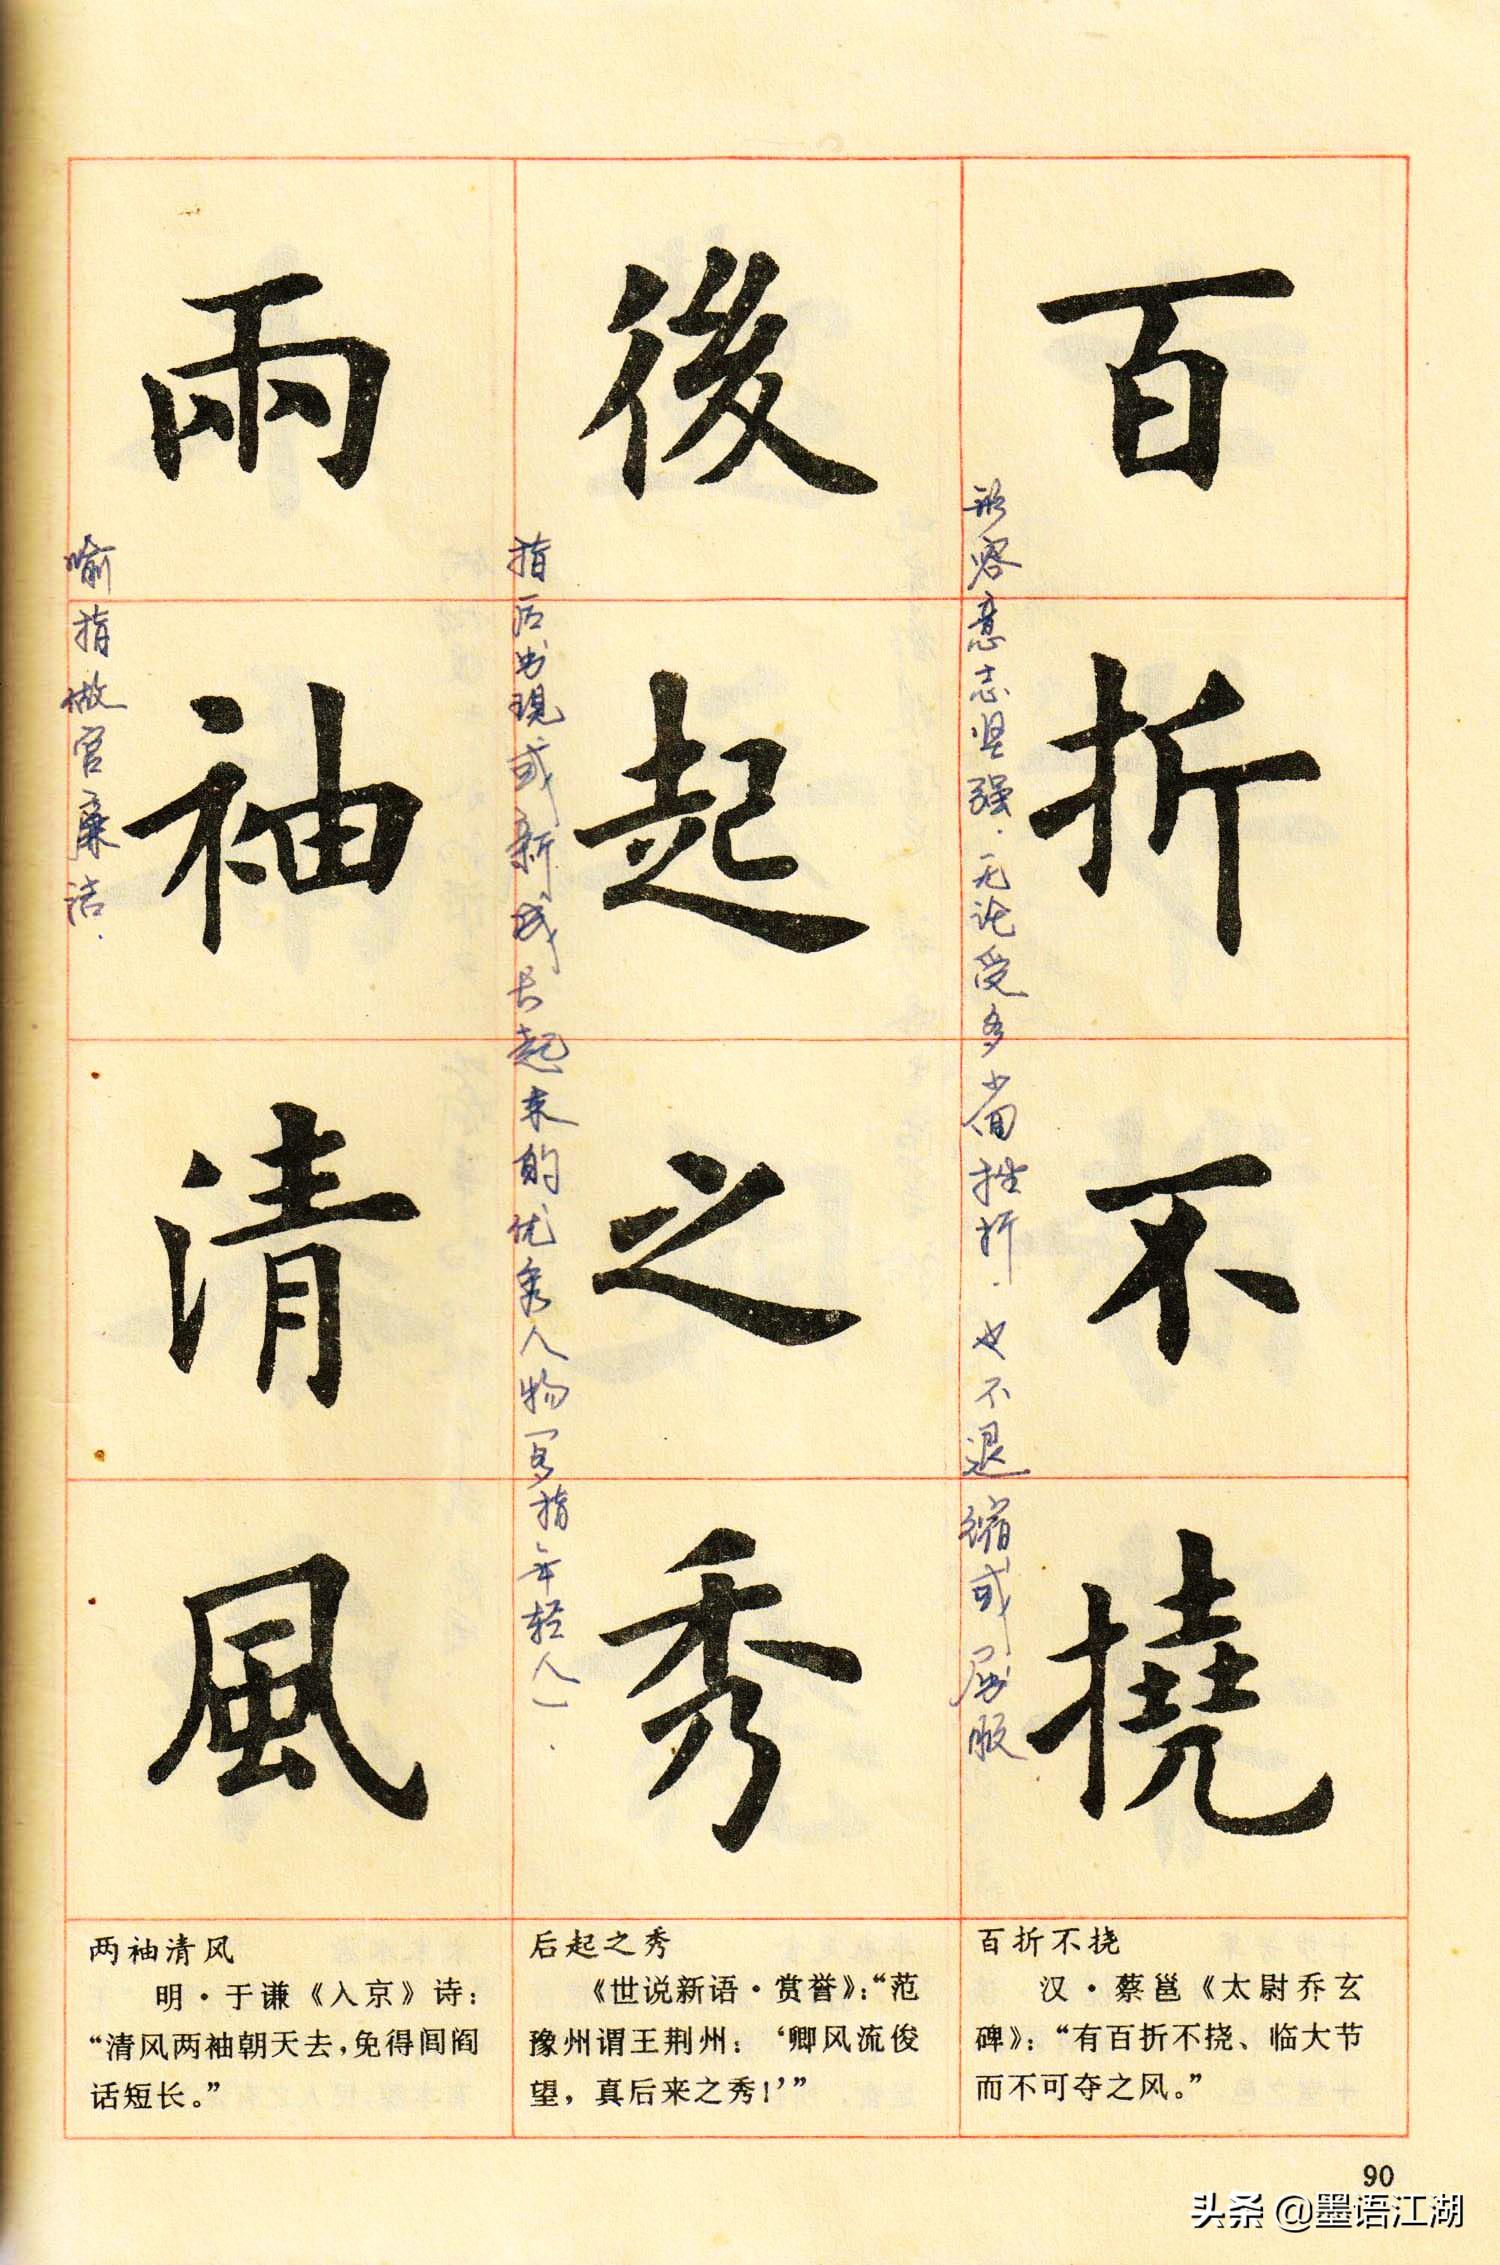 百折不撓
形容意志坚强.无论受多少回挫折.也不退缩或屈服
後起之秀
指后出现或新成长起来的优秀人物(多指年轻人).
兩袖清風
喻指做官廉洁.
百折不挠
汉·蔡邕《太尉乔玄
碑》：“有百折不挠、临大节
而不可夺之风。”
后起之秀
《世说新语·赏誉》：“范
豫州谓王荆州：‘卿风流俊
望，真后来之秀！’”
两袖清风
明·于谦《入京》诗：
“清风两袖朝天去，免得闾阎
话短长。”
90
头条@墨语江湖